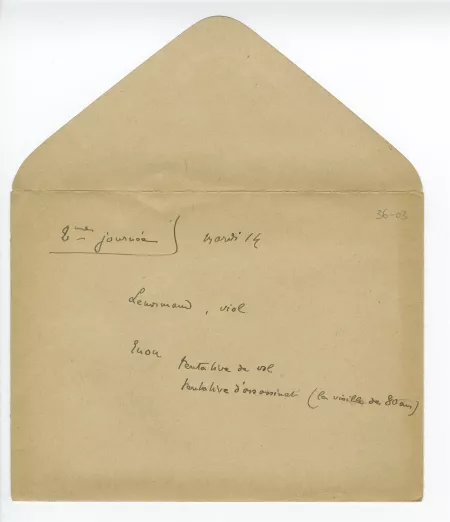 36-03
2me journée mardi 14
Lenormand, viol
Enou
tentative de vol
tentative d'assassinat (la vieille de 80 ans)